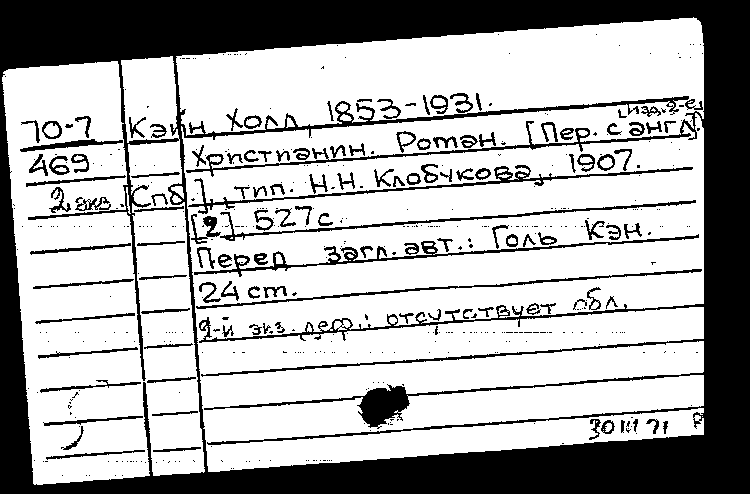 [изд. 2-е]
70-7 Кэйн, Холл, 1853-1931.
469 Христианин. Роман. [Пер. с англ.]
2 экз. [Спб.], тип. Н.Н. Клобукова, 1907.
[2], 527 с.
Перед загл. авт.: Голь Кэн.
24 cm.
2-й экз. деф.: отсутствует обл.
30 III 71